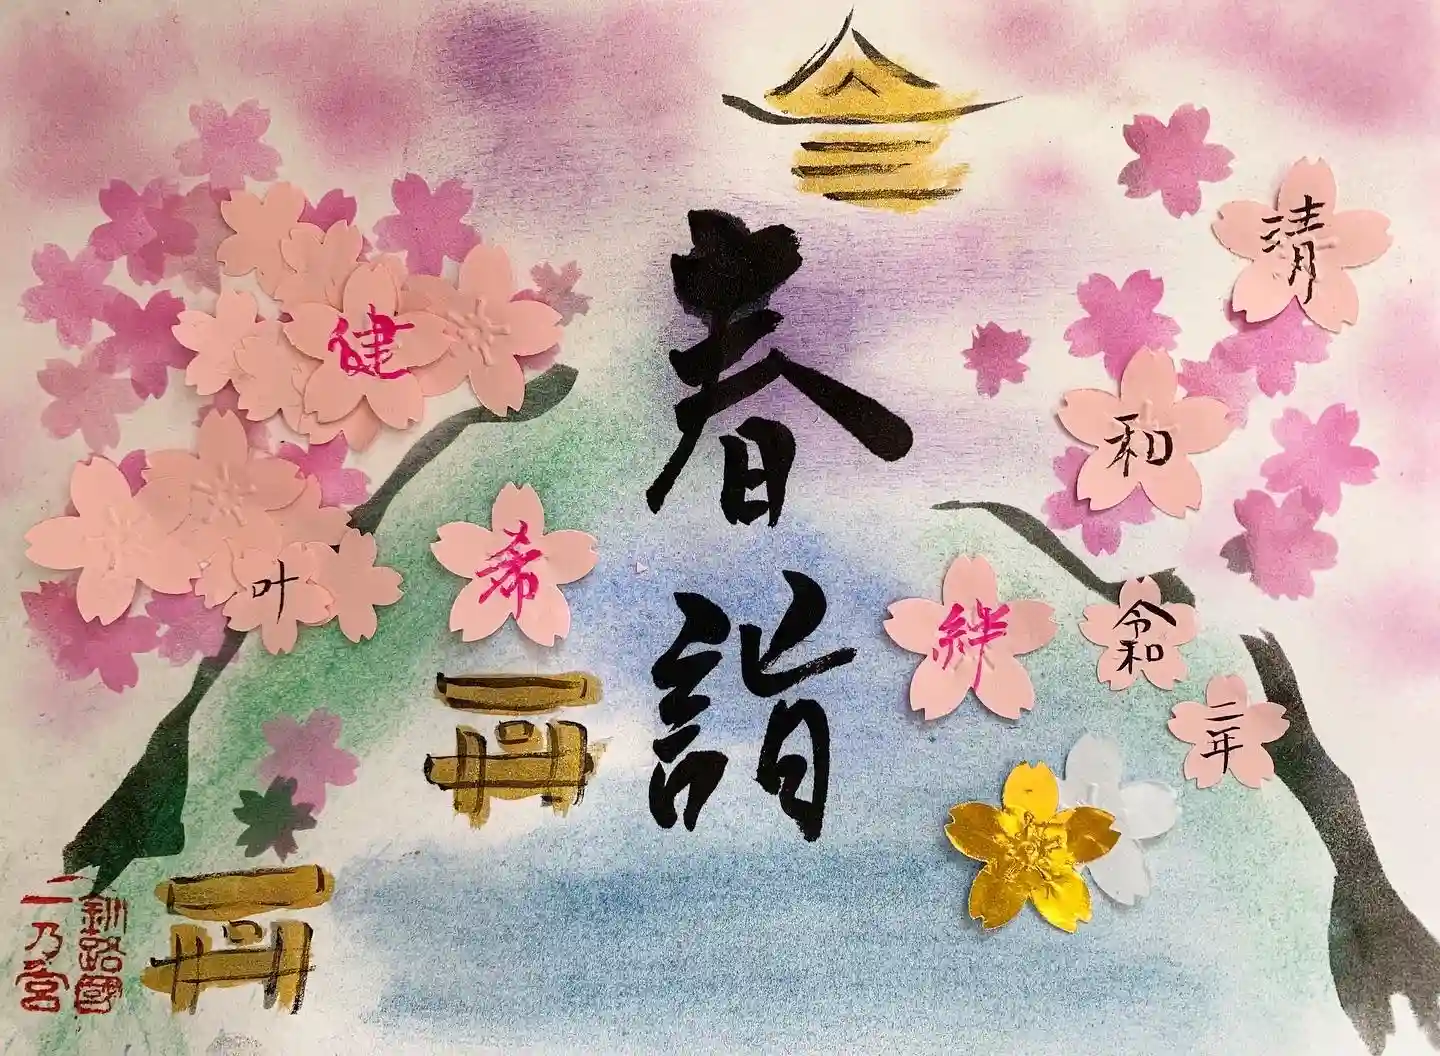 春詣
清
和
令和
二年
絆
希
健
叶
釧路國
一乃宮